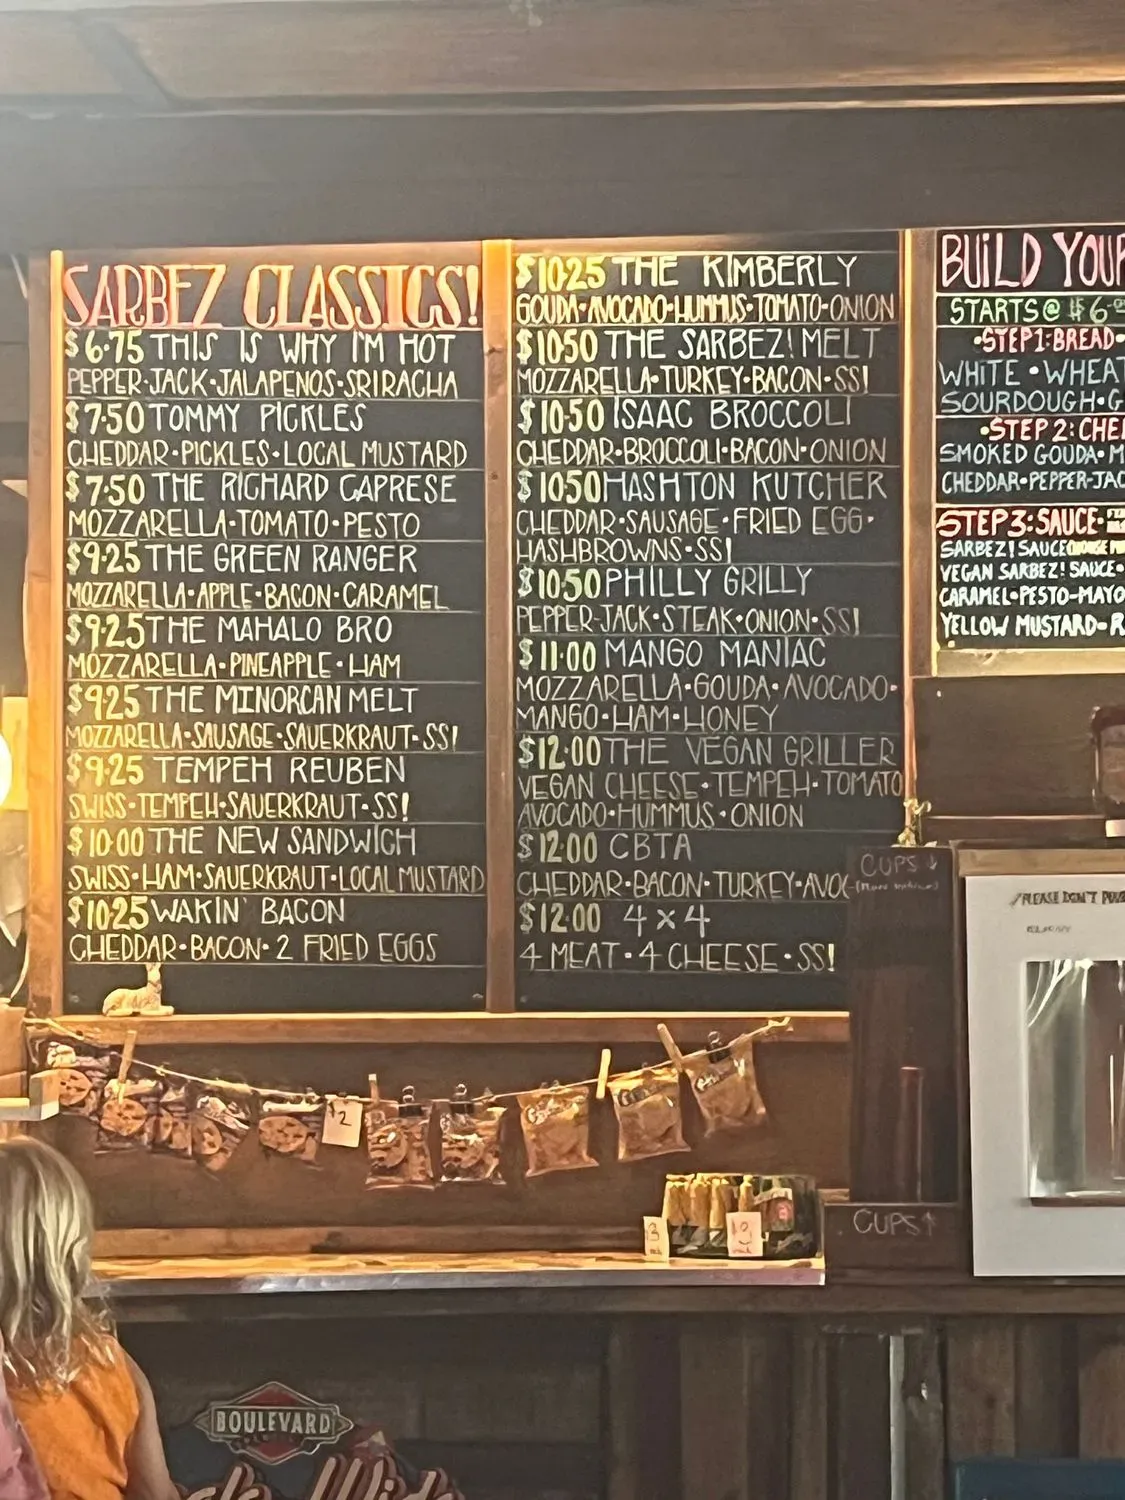 SARBEZ CLASSICS!
$6.75 THIS IS WHY I'M HOT
PEPPER-JACK•JALAPENOS•SRIRACHA
$7.50 TOMMY PICKLES
CHEDDAR•PICKLES•LOCAL MUSTARD
$7.50 THE RICHARD CAPRESE
MOZZARELLA•TOMATO•PESTO
$9.25 THE GREEN RANGER
MOZZARELLA•APPLE•BACON•CARAMEL
$9.25 THE MAHALO BRO
MOZZARELLA•PINEAPPLE•HAM
$9.25 THE MINORCAN MELT
MOZZARELLA•SAUSAGE•SAUERKRAUT•SS!
$9.25 TEMPEH REUBEN
SWISS•TEMPEH•SAUERKRAUT•SS!
$10.00 THE NEW SANDWICH
SWISS•HAM•SAUERKRAUT•LOCAL MUSTARD
$10.25 WAKIN' BACON
CHEDDAR•BACON•2 FRIED EGGS
$10.25 THE KIMBERLY
GOUDA•AVOCADO•HUMMUS•TOMATO•ONION
$10.50 THE SARBEZ! MELT
MOZZARELLA•TURKEY•BACON•SS!
$10.50 ISAAC BROCCOLI
CHEDDAR•BROCCOLI•BACON•ONION
$10.50 HASHTON KUTCHER
CHEDDAR•SAUSAGE•FRIED EGG•
HASHBROWNS•SS!
$10.50 PHILLY GRILLY
PEPPER-JACK•STEAK•ONION•SS!
$11.00 MANGO MANIAC
MOZZARELLA•GOUDA•AVOCADO•
MANGO•HAM•HONEY
$12.00 THE VEGAN GRILLER
VEGAN CHEESE•TEMPEH•TOMATO
AVOCADO•HUMMUS•ONION
$12.00 CBTA
CHEDDAR•BACON•TURKEY•AVOC
$12.00 4x4
4 MEAT•4 CHEESE•SS!
BUILD YOUR
STARTS @ $6
•STEP 1: BREAD•
WHITE•WHEAT
SOURDOUGH•G
•STEP 2: CHEE
SMOKED GOUDA•M
CHEDDAR•PEPPER-JAC
STEP 3: SAUCE•
SARBEZ! SAUCE
VEGAN SARBEZ! SAUCE•
CARAMEL•PESTO-MAYO
YELLOW MUSTARD•R
CUPS ↓
PLEASE DON'T
$2
$3
$3
CUPS ↑
BOULEVARD